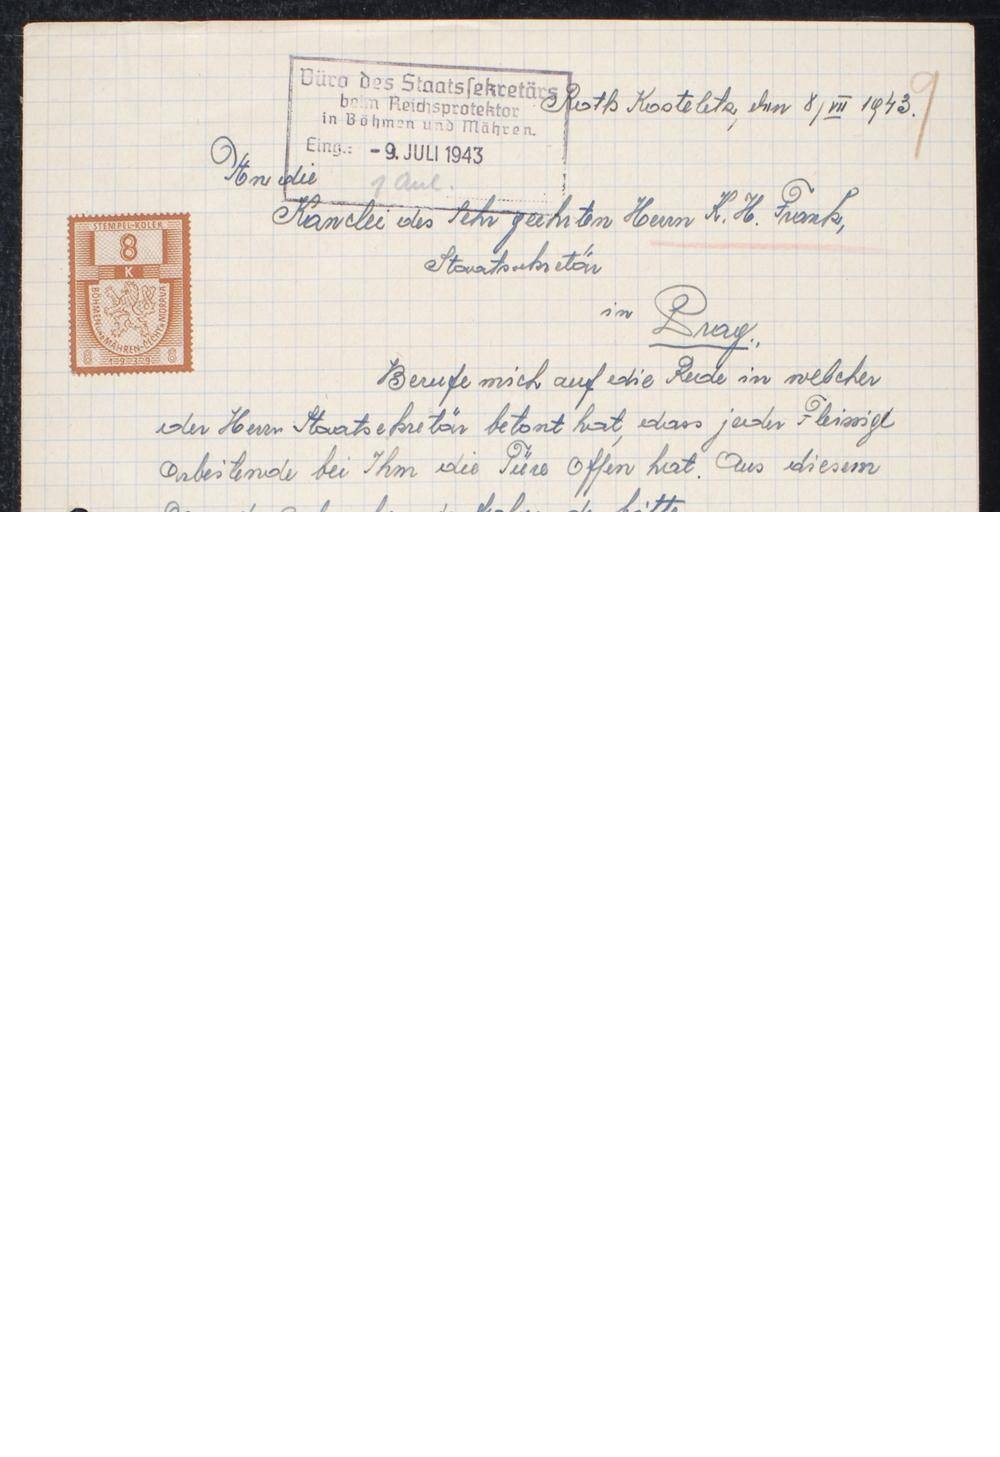 Büro des Staatssekretärs
beim Reichsprotektor
in Böhmen und Mähren.
Eing.: - 9. JULI 1943
Roth Kosteletz, den 8/VII 1943.
9
An die
Kanclei des Sehr geehrten Herrn K. H. Frank,
Staatsekretär
in Prag.
STEMPEL-KOLEK
8
K
BÖHMEN UND MÄHREN-ČECHY A MORAVA
8 8
1939
Berufe mich auf die Rede in welcher
der Herrn Staatsekretär betont hat, dass jeder Fleissigl
arbeitende bei Ihm die Türe offen hat. Aus diesem
bitte